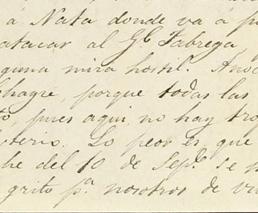 á Natá donde va a p
atacar al Gl Fabrega
guna mira hostil. Anoc
hagre, porque todas las
to, pues aqui no hay tro
sterio. Lo peor es que
he del 10 de Sepe. se p
grito pa nosotros de v